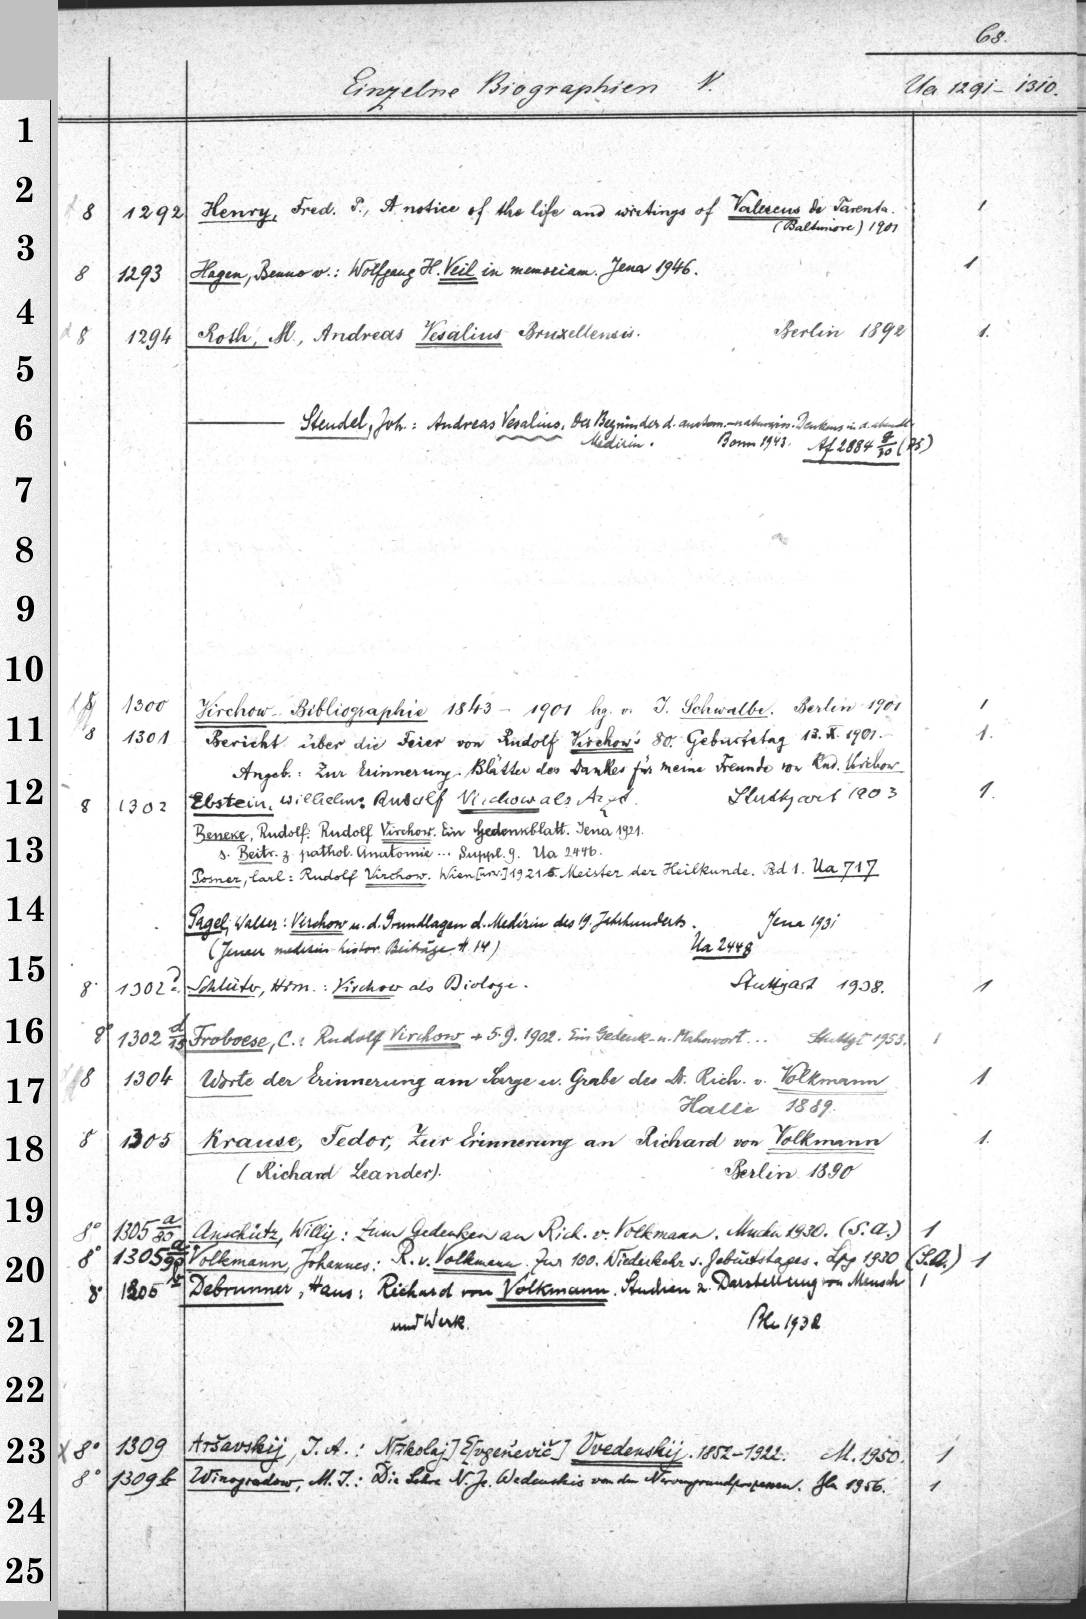 68.
Einzelne Biographien V. Ua 1291- 1310.
1
2
8 1292 Henry, Fred. P., A notice of the life and writings of Valescus de Tarenta. 1
(Baltimore) 1901
3
8 1293 Hagen, Benno v.: Wolfgang H. Veil in memoriam. Jena 1946. 1
4
8 1294 Roth, M., Andreas Vesalius Bruxellensis. Berlin 1892 1.
5
6
Steudel, Joh.: Andreas Vesalius, der Begründer d. anatom.-naturwiss. Denkens in d. abendl.
Medizin. Bonn 1943. Af 2884 g/30 (25)
7
8
9
10
8 1300 Virchow-Bibliographie 1843 - 1901 hg. v. J. Schwalbe. Berlin 1901 1
11
8 1301 Bericht über die Feier von Rudolf Virchow's 80. Geburtstag 13. X. 1901. 1.
Angeb.: Zur Erinnerung. Blätter des Dankes für meine Freunde von Rud. Virchow
12
8 1302 Ebstein, Wilhelm: Rudolf Virchow als Arzt. Stuttgart 1903 1.
Beneke, Rudolf: Rudolf Virchow. Ein Gedenkblatt. Jena 1921.
13
s. Beitr. z. pathol. Anatomie ... Suppl. 9. Ua 2446.
Posner, Carl: Rudolf Virchow. Wien [usw.] 1921 = Meister der Heilkunde. Bd 1. Ua 717
14
Pagel, Walter: Virchow u. d. Grundlagen d. Medizin des 19. Jahrhunderts. Jena 1931
(Jenaer medizin-histor. Beiträge H 14) Ua 2448
15
8. 1302 Schlüter, Hrm.: Virchow als Biologe. Stuttgart 1938. 1
16
8° 1302 d/15 Froboese, C.: Rudolf Virchow + 5.9.1902. Ein Gedenk- u. Mahnwort... Stuttgt 1953. 1
17
8 1304 Worte der Erinnerung am Sarge u. Grabe des Dr. Rich. v. Volkmann 1
Halle 1889.
18
8 1305 Krause, Fedor, Zur Erinnerung an Richard von Volkmann 1.
(Richard Leander). Berlin 1890
19
8° 1305 a/80 Anschütz, Willy: Zum Gedenken an Rich. v. Volkmann. Mnchn 1930. (S.A.) 1
20
8° 1305 a/90 Volkmann, Johannes: R. v. Volkmann. Zur 100. Wiederkehr s. Geburtstages. Lpg 1930 (S.A.) 1
8° 1305 Debrunner, Hans: Richard von Volkmann. Studien z. Darstellung von Mensch 1
21
und Werk. Bln 1932
22
23
x 8° 1309 Aršavskij, I. A.: N[ikolaj] E[vgen'evič] Vvedenskij. 1852-1922. M. 1950. 1
8° 1309 b Winogradow, M. I.: Die Lehre N. Je. Wedenskis von den Nervengrundprozessen. Jln 1956. 1
24
25